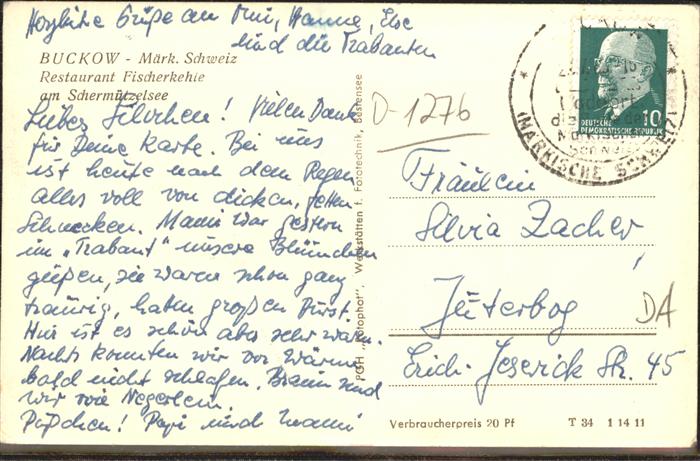 Herzliche Grüße an Omi, Hanne, Else
und die Trabanten
BUCKOW - Märk. Schweiz
Restaurant Fischerkehle
am Schermützelsee
Liebes Silvchen! Vielen Dank
für Deine Karte. Bei uns
ist heute nach dem Regen
alles voll von dicken, fetten
Schnecken. Mami war gestern
im „Trabant" unsere Blümchen
gießen, sie waren schon ganz
traurig, haben großen Durst.
Hier ist es schön aber sehr warm.
Nachts konnten wir vor Wärme
bald nicht schlafen. Braun sind
wir wie Negerlein.
Püppchen! Papi und Mami
PGH „Fotophot", Werkstätten f. Fototechnik, Bestensee
D-1276
DEUTSCHE
DEMOKRATISCHE REPUBLIK
10
(MÄRKISCHE SCHWEIZ)
Fräulein
Silvia Zacher
Jüterbog
DA
Erich-Jeserick Str. 45
Verbraucherpreis 20 Pf
T 34 1 14 11